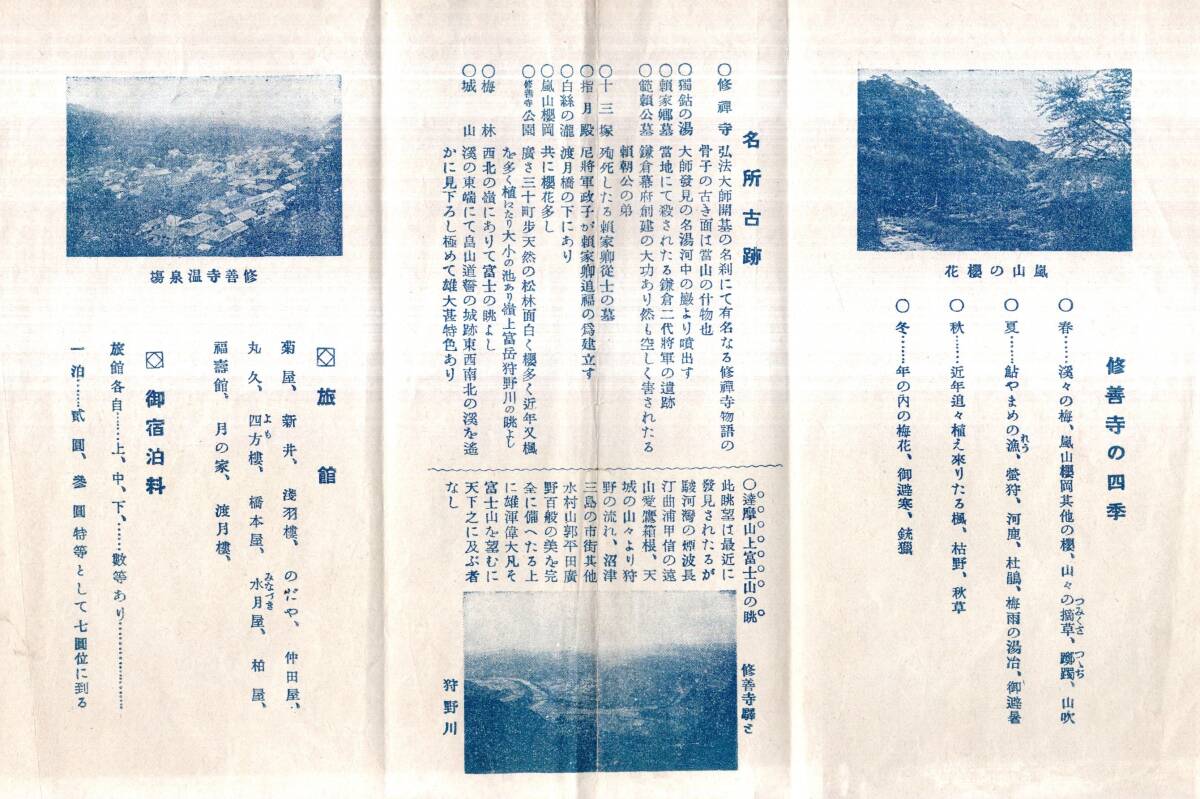 嵐山の櫻花
修善寺の四季
○春……溪々の梅、嵐山櫻岡其他の櫻、山々の摘草、躑躅、山吹
つみくさ
つゝぢ
○夏……鮎やまめの漁、螢狩、河鹿、杜鵑、梅雨の湯冶、御避暑
れう
○秋……近年追々植え來りたる楓、枯野、秋草
○冬……年の内の梅花、御避寒、銃獵
名所古跡
○修禪寺 弘法大師開基の名刹にて有名なる修禪寺物語の
骨子の古き面は當山の什物也
○獨鈷の湯 大師發見の名湯河中の巖より噴出す
○賴家鄕墓 當地にて殺されたる鎌倉二代將軍の遺跡
○範賴公墓 鎌倉幕府創建の大功あり然も空しく害されたる
賴朝公の弟
○十三塚 殉死したる賴家卿從士の墓
○指月殿 尼將軍政子が賴家卿追福の爲建立す
○白絲の瀧 渡月橋の下にあり
○嵐山櫻岡 共に櫻花多し
○修善寺公園 廣さ三十町歩天然の松林面白く櫻多く近年又楓
を多く植ゑたり大小の池あり嶺上富岳狩野川の眺よし
○梅林 西北の嶺にありて富士の眺よし
○城山 溪の東端にて畠山道誓の城跡東西南北の溪を遙
かに見下ろし極めて雄大甚特色あり
○達摩山上富士山の眺
此眺望は最近に
發見されたるが
駿河灣の煙波長
汀曲浦甲信の遠
山愛鷹箱根、天
城の山々より狩
野の流れ、沼津
三島の市街其他
水村山郭平田廣
野百般の美を完
全に備へたる上
に雄渾偉大凡そ
富士山を望むに
天下之に及ぶ者
なし
修善寺驛と
狩野川
修善寺温泉塲
旅館
菊屋、新井、淺羽樓、のだや、仲田屋、
丸久、四方樓、橋本屋、水月屋、柏屋、
よも
みなづき
福壽館、月の家、渡月樓、
御宿泊料
旅館各自……上、中、下、……數等あり…………
一泊……貳圓、參圓特等として七圓位に到る